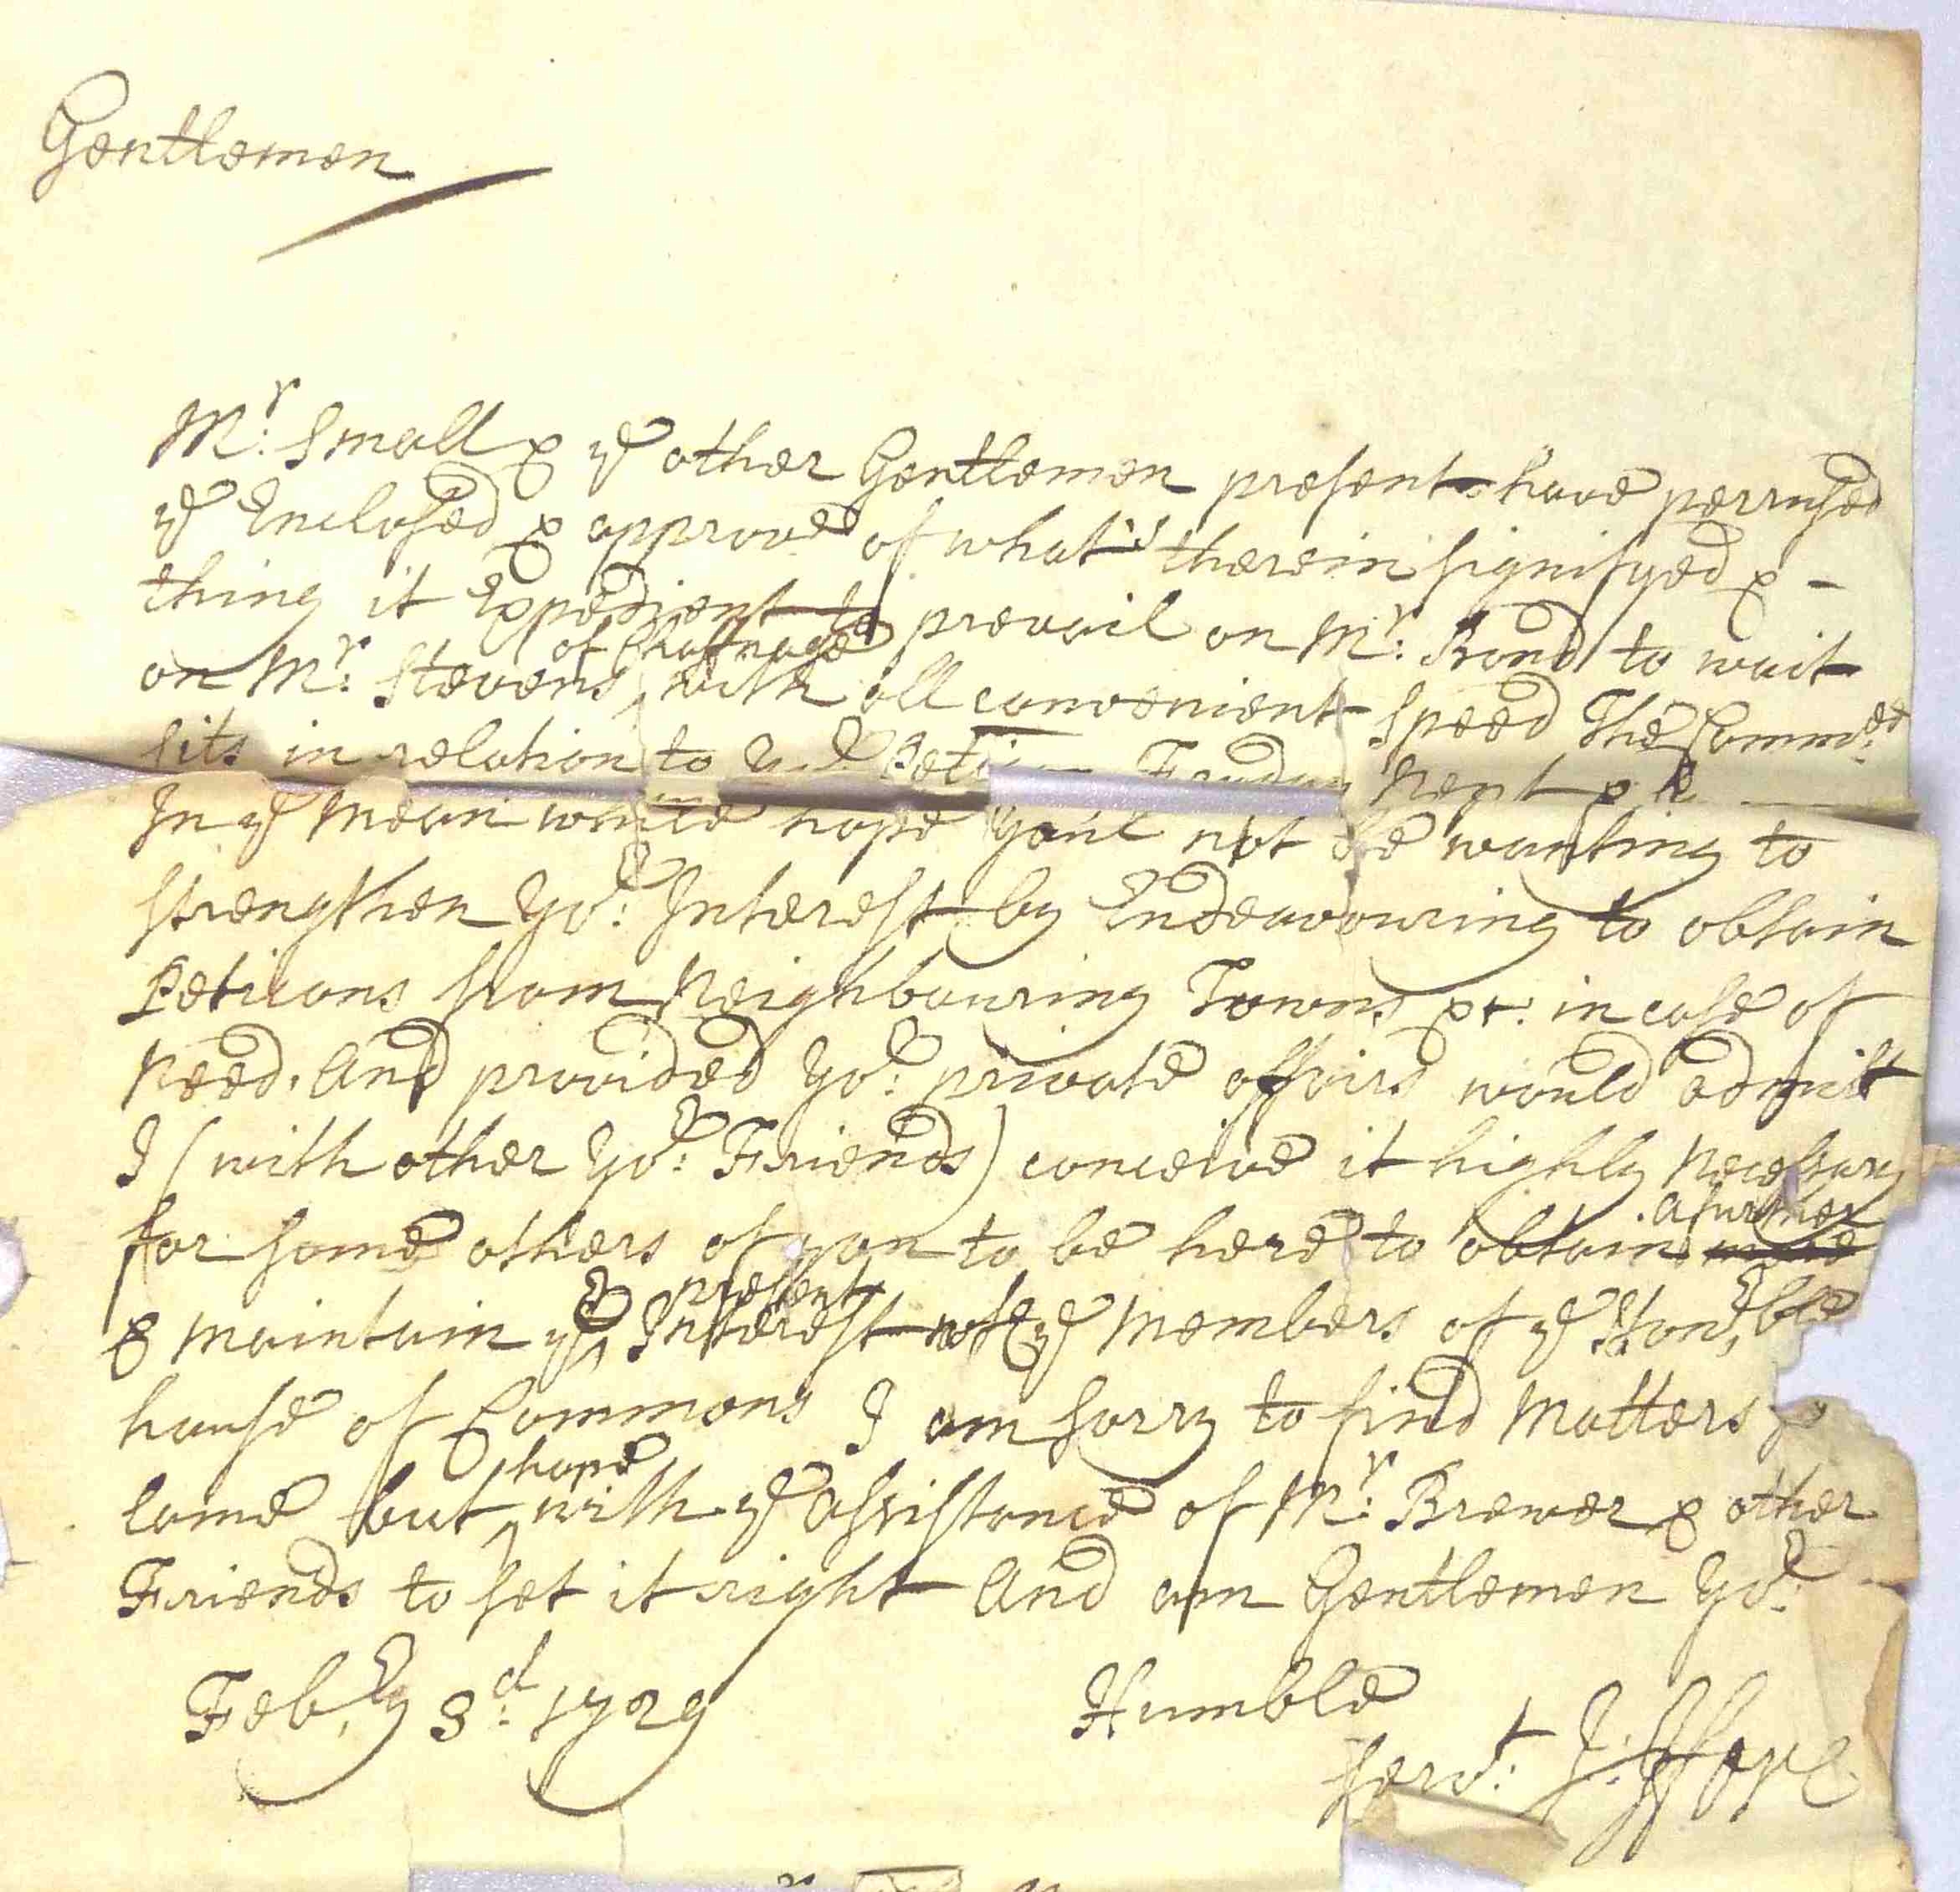 Gentlemen
Mr: Small & ye other Gentlemen present have perrused
ye Enclosed & approve of what's therein signifyed & -
thing it Expedient to prevail on Mr: Bond to wait
of
on Mr: Stevens, with all convenient Speed The Commee:
sits in relation to Petition Next &
In ye mean while hope you'l not be wanting to
strengthen Yor: Interest by Endeavouring to obtain
Peticons from Neighbouring Towns &c. in case of
Need. And provided Yor: private affairs would admitt
I (with other Yor: Friends) conceive it highly Necessary
a further
for some others of you to be here to obtain more
present
& maintain ye Interest wth ye Members of ye Honrble
house of Commons I am sorry to find Matters so
hope
lame but with ye Assistance of Mr: Brewer & other
Friends to set it right And am Gentlemen Yor:
Febry 3d: 1729 Humble
Servt: